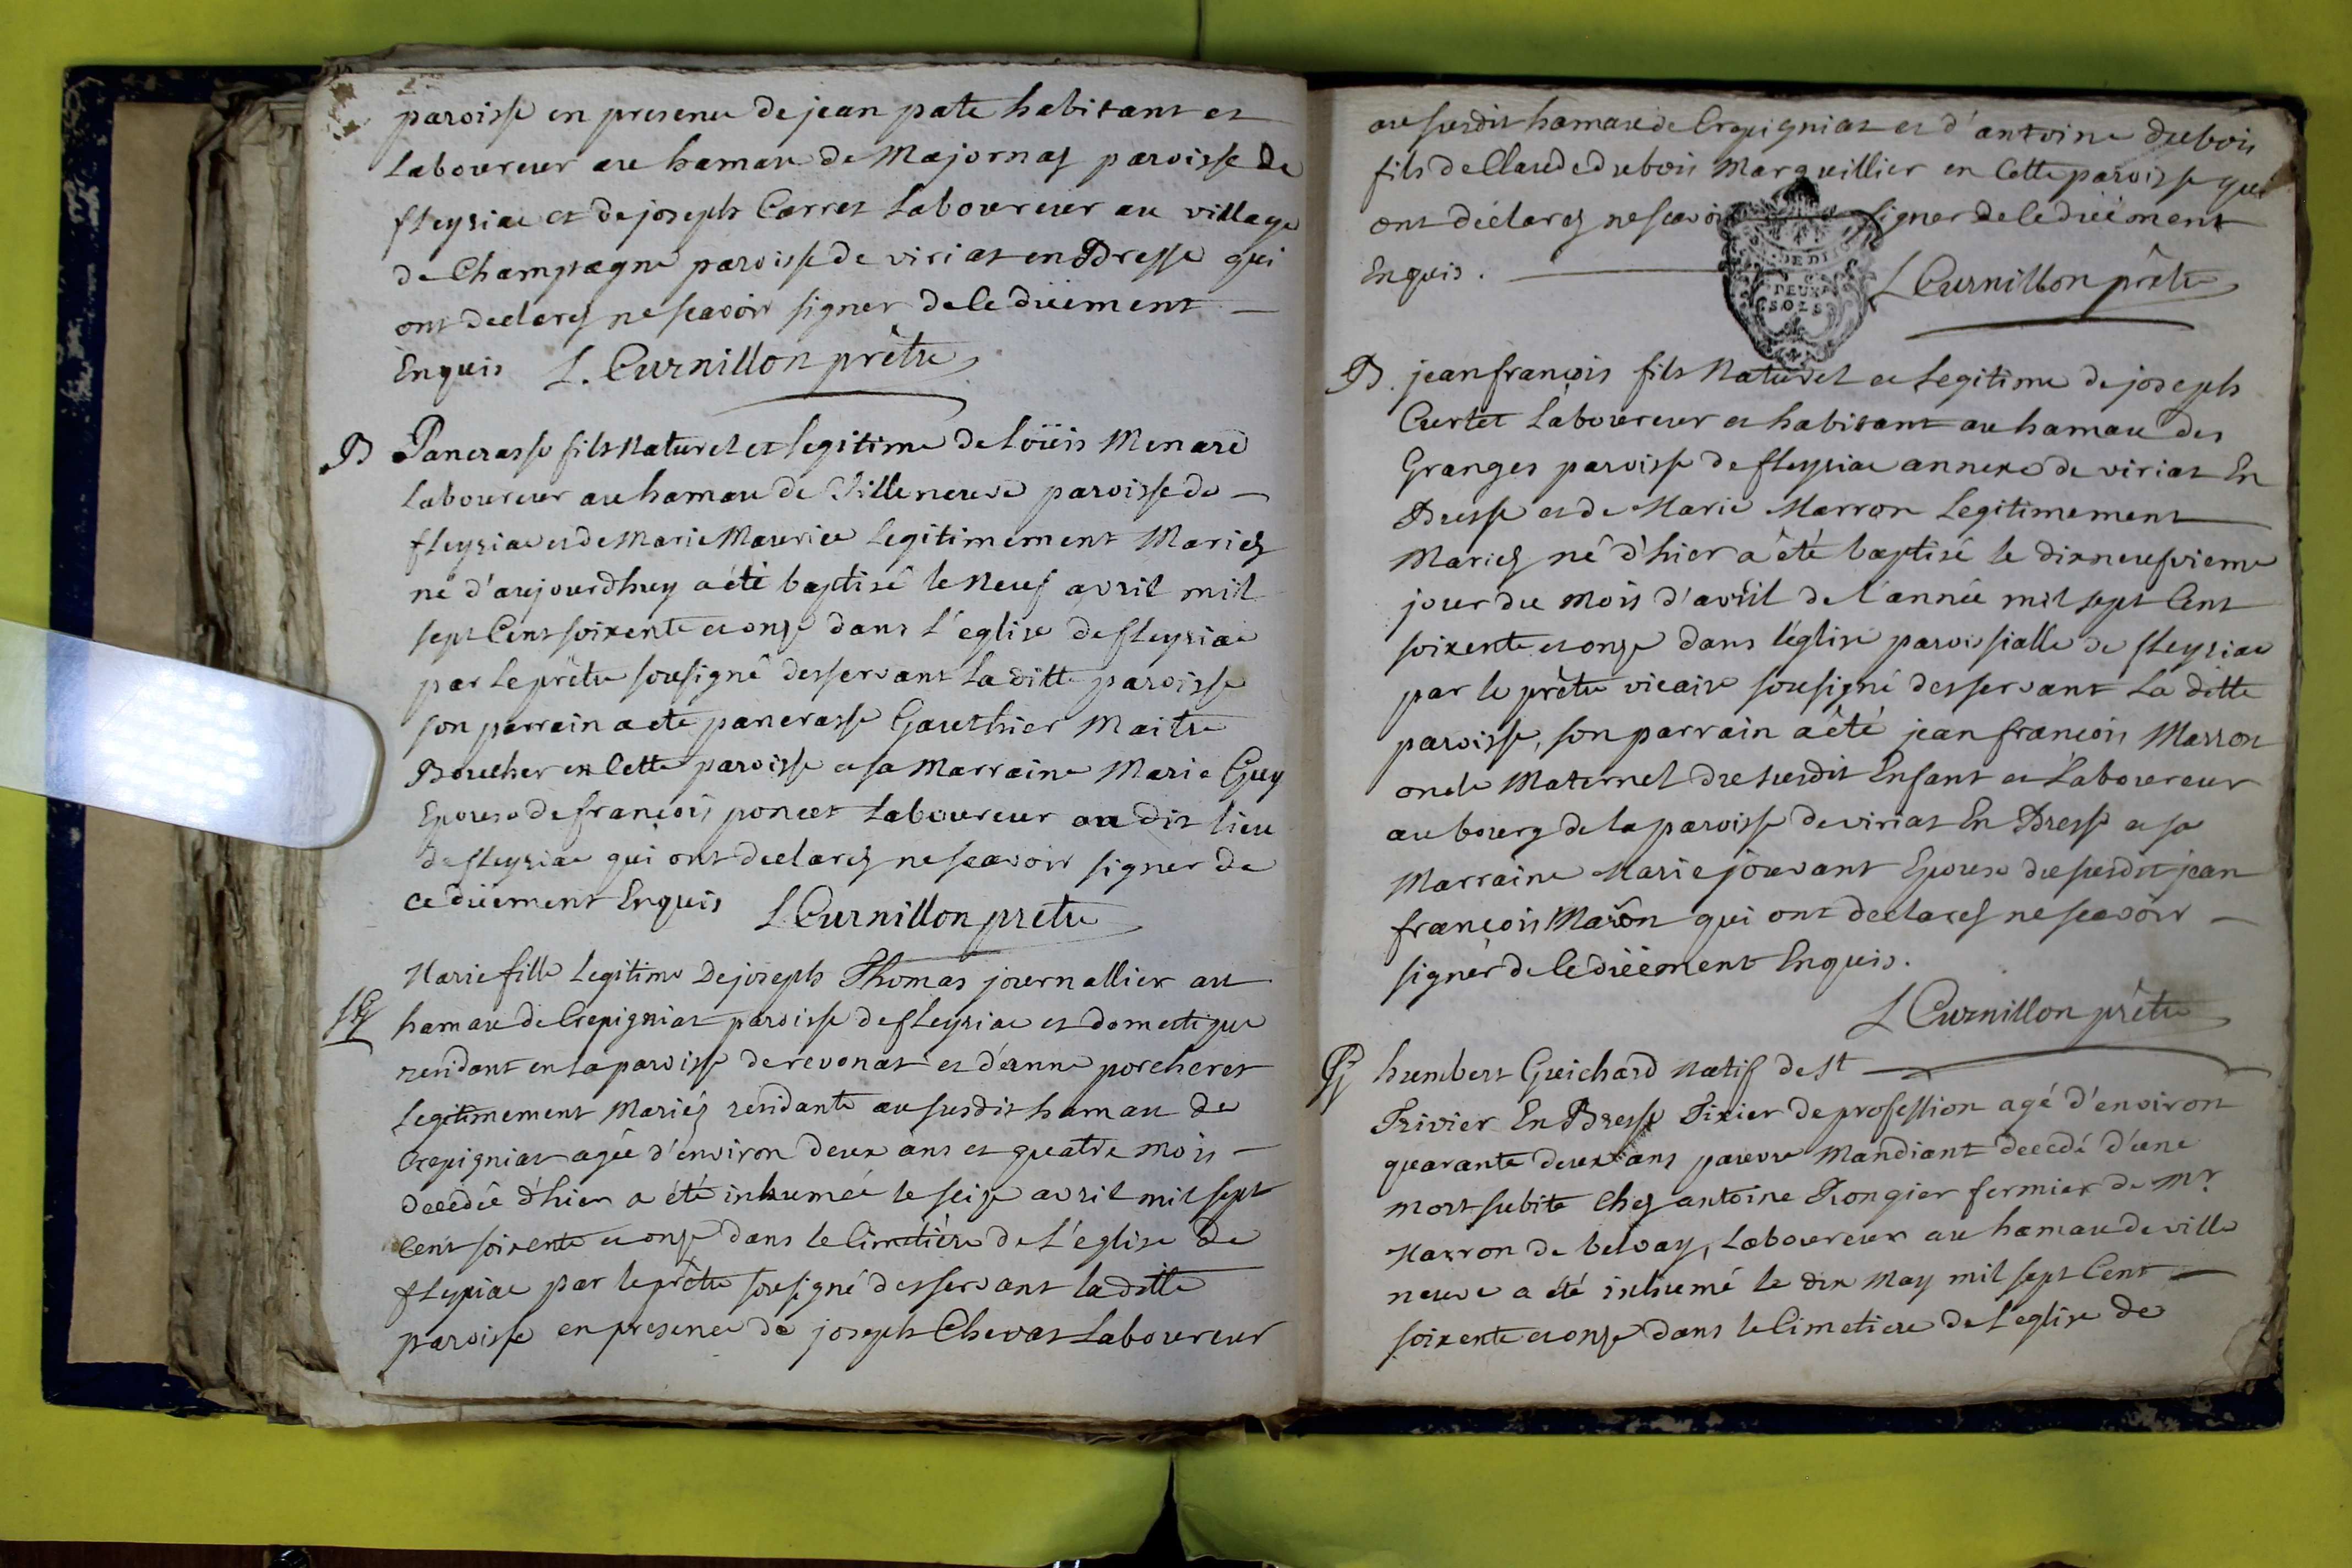 paroisse en presence de jean pate habitant et
laboureur au hamau de Majornas paroisse de
fleyriac et de joseph Carret Laboureur au village
de Champagne paroisse de viriat en Bresse qui
ont declarez ne scavoir signer de ce düement
Enquis L. Curnillon prêtre
B Pancrasse fils Naturel et legitime de loüis Menard
laboureur au hamau de Villeneuve paroisse de
fleyriac et de Marie Maurice Legitimement Mariez
né d'aujourdhuy a été baptisé le Neuf avril mil
sept Cent soixente et onze dans l'eglise de fleyriac
par le prêtre sousigné desservant la ditte paroisse
son parrain a ete pancrasse Gauthier Maitre
Boucher en Cette paroisse et sa Marraine Marie Guy
Epouse de françois poncet Laboureur au dit lieu
de fleyriac qui ont declarez ne scavoir signer de
ce düement Enquis L Curnillon pretre
Marie fille Legitime De joseph Thomas journallier au
hamau de Crepigniat paroisse de fleyriac et domestique
residant en la paroisse de revonat et d'anne porcheret
Legitimement Mariéz residante au susdit hamau de
Crepigniat agée d'environ deux ans et quatre mois
decédée d'hier a été inhumée le seize avril mil sept
Cent soixente et onze dans le Cimetière de L'eglise De
fleyriac par le prêtre sousigné desservant la ditte
paroisse en presence de joseph Chevat Laboureur
au susdit hamau de Crepigniat et d'antoine dubois
fils de Claude dubois Marguillier en Cette paroisse qui
ont déclarez ne scavoir signer de ce düëment
Enquis. L Curnillon prêtre
DEUX
SOLS
B. jean françois fils Naturel et Legitime de joseph
Curtet Laboureur et habitant au hamau des
Granges paroisse de fleyriac annexe de viriat En
Bresse et de Marie Marron Legitimement
Mariez né d'hier a été baptisé le dixneufvieme
jour du mois d'avril de l'année mil sept Cent
soixente et onze dans l'église paroissialle de fleyriac
par le prêtre vicaire sousigné desservant La ditte
paroisse, son parrain a été jean françois Marron
oncle Maternel du susdit Enfant et Laboureur
au bourg de la paroisse de viriat En Bresse et sa
Marraine Marie jouvant Epouse du susdit jean
françois Maron qui ont declarez ne scavoir
signer de Ce düëment Enquis.
L Curnillon prêtre
humbert Guichard Natif de St
Trivier En Bresse Tixier de profession agé d'environ
quarante deux ans pauvre Mandiant decédé d'une
mort subite Chez antoine Rongier fermier de Mr
Marron de belvay, Laboureur au hamau de ville
neuve a été inhumé le dix May mil sept Cent
soixente et onze dans le Cimetiere de L'eglise de